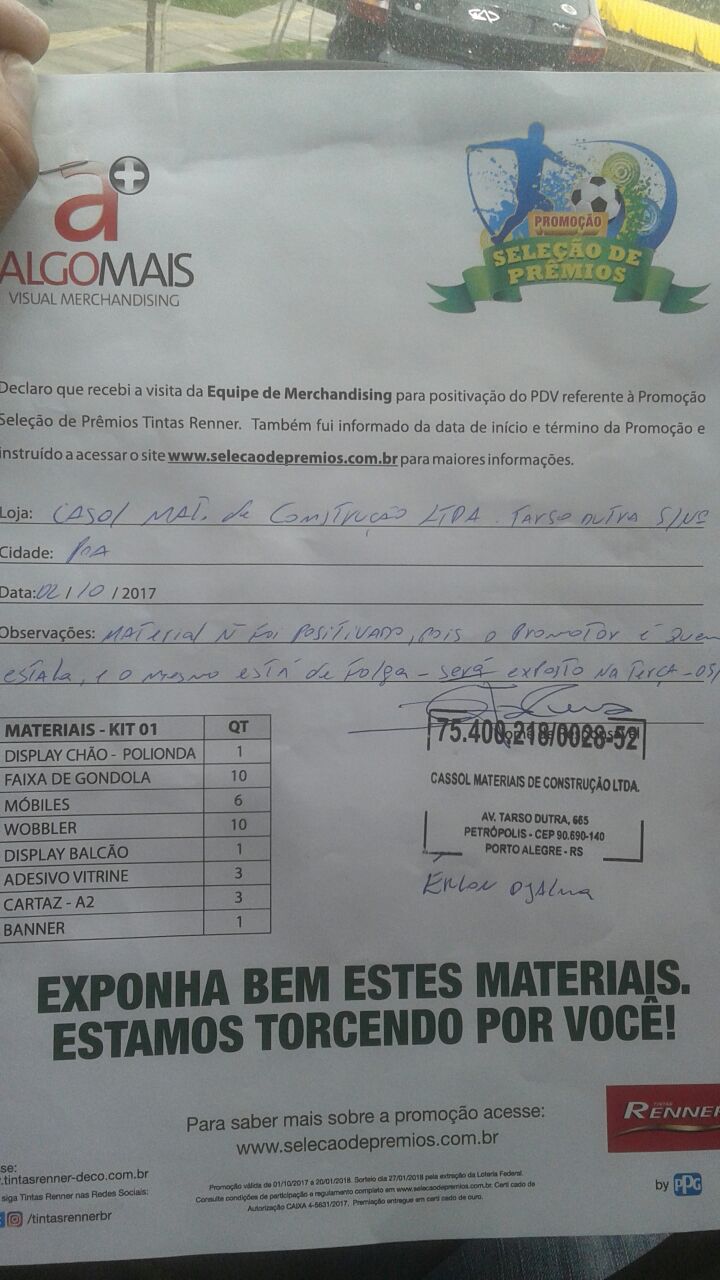 a+
ALGOMAIS
VISUAL MERCHANDISING
PROMOÇÃO
SELEÇÃO DE
PRÊMIOS
Declaro que recebi a visita da Equipe de Merchandising para positivação do PDV referente à Promoção
Seleção de Prêmios Tintas Renner. Também fui informado da data de início e término da Promoção e
instruído a acessar o site www.selecaodepremios.com.br para maiores informações.
Loja: CASOL MAT. de Construção LTDA. TARSO DUTRA S/Nº
Cidade: POA
Data: 02 / 10 / 2017
Observações: MATERIAL Ñ FOI POSITIVADO, POIS O PROMOTOR É QUEM
ESTALA, E O MESMO ESTÁ DE FOLGA - SERÁ EXPOSTO NA TERÇA - 03/
75.400.218/0028-52
CASSOL MATERIAIS DE CONSTRUÇÃO LTDA.
AV. TARSO DUTRA, 665
PETRÓPOLIS - CEP 90.690-140
PORTO ALEGRE - RS
MATERIAIS - KIT 01 QT
DISPLAY CHÃO - POLIONDA 1
FAIXA DE GONDOLA 10
MÓBILES 6
WOBBLER 10
DISPLAY BALCÃO 1
ADESIVO VITRINE 3
CARTAZ - A2 3
BANNER 1
EXPONHA BEM ESTES MATERIAIS.
ESTAMOS TORCENDO POR VOCÊ!
Para saber mais sobre a promoção acesse:
www.selecaodepremios.com.br
TINTAS
RENNER
by PPG
se:
.tintasrenner-deco.com.br
siga Tintas Renner nas Redes Sociais:
/tintasrennerbr
Promoção válida de 01/10/2017 a 20/01/2018. Sorteio dia 27/01/2018 pela extração da Loteria Federal.
Consulte condições de participação e regulamento completo em www.selecaodepremios.com.br. Certi cado de
Autorização CAIXA 4-5631/2017. Premiação entregue em certi cado de ouro.